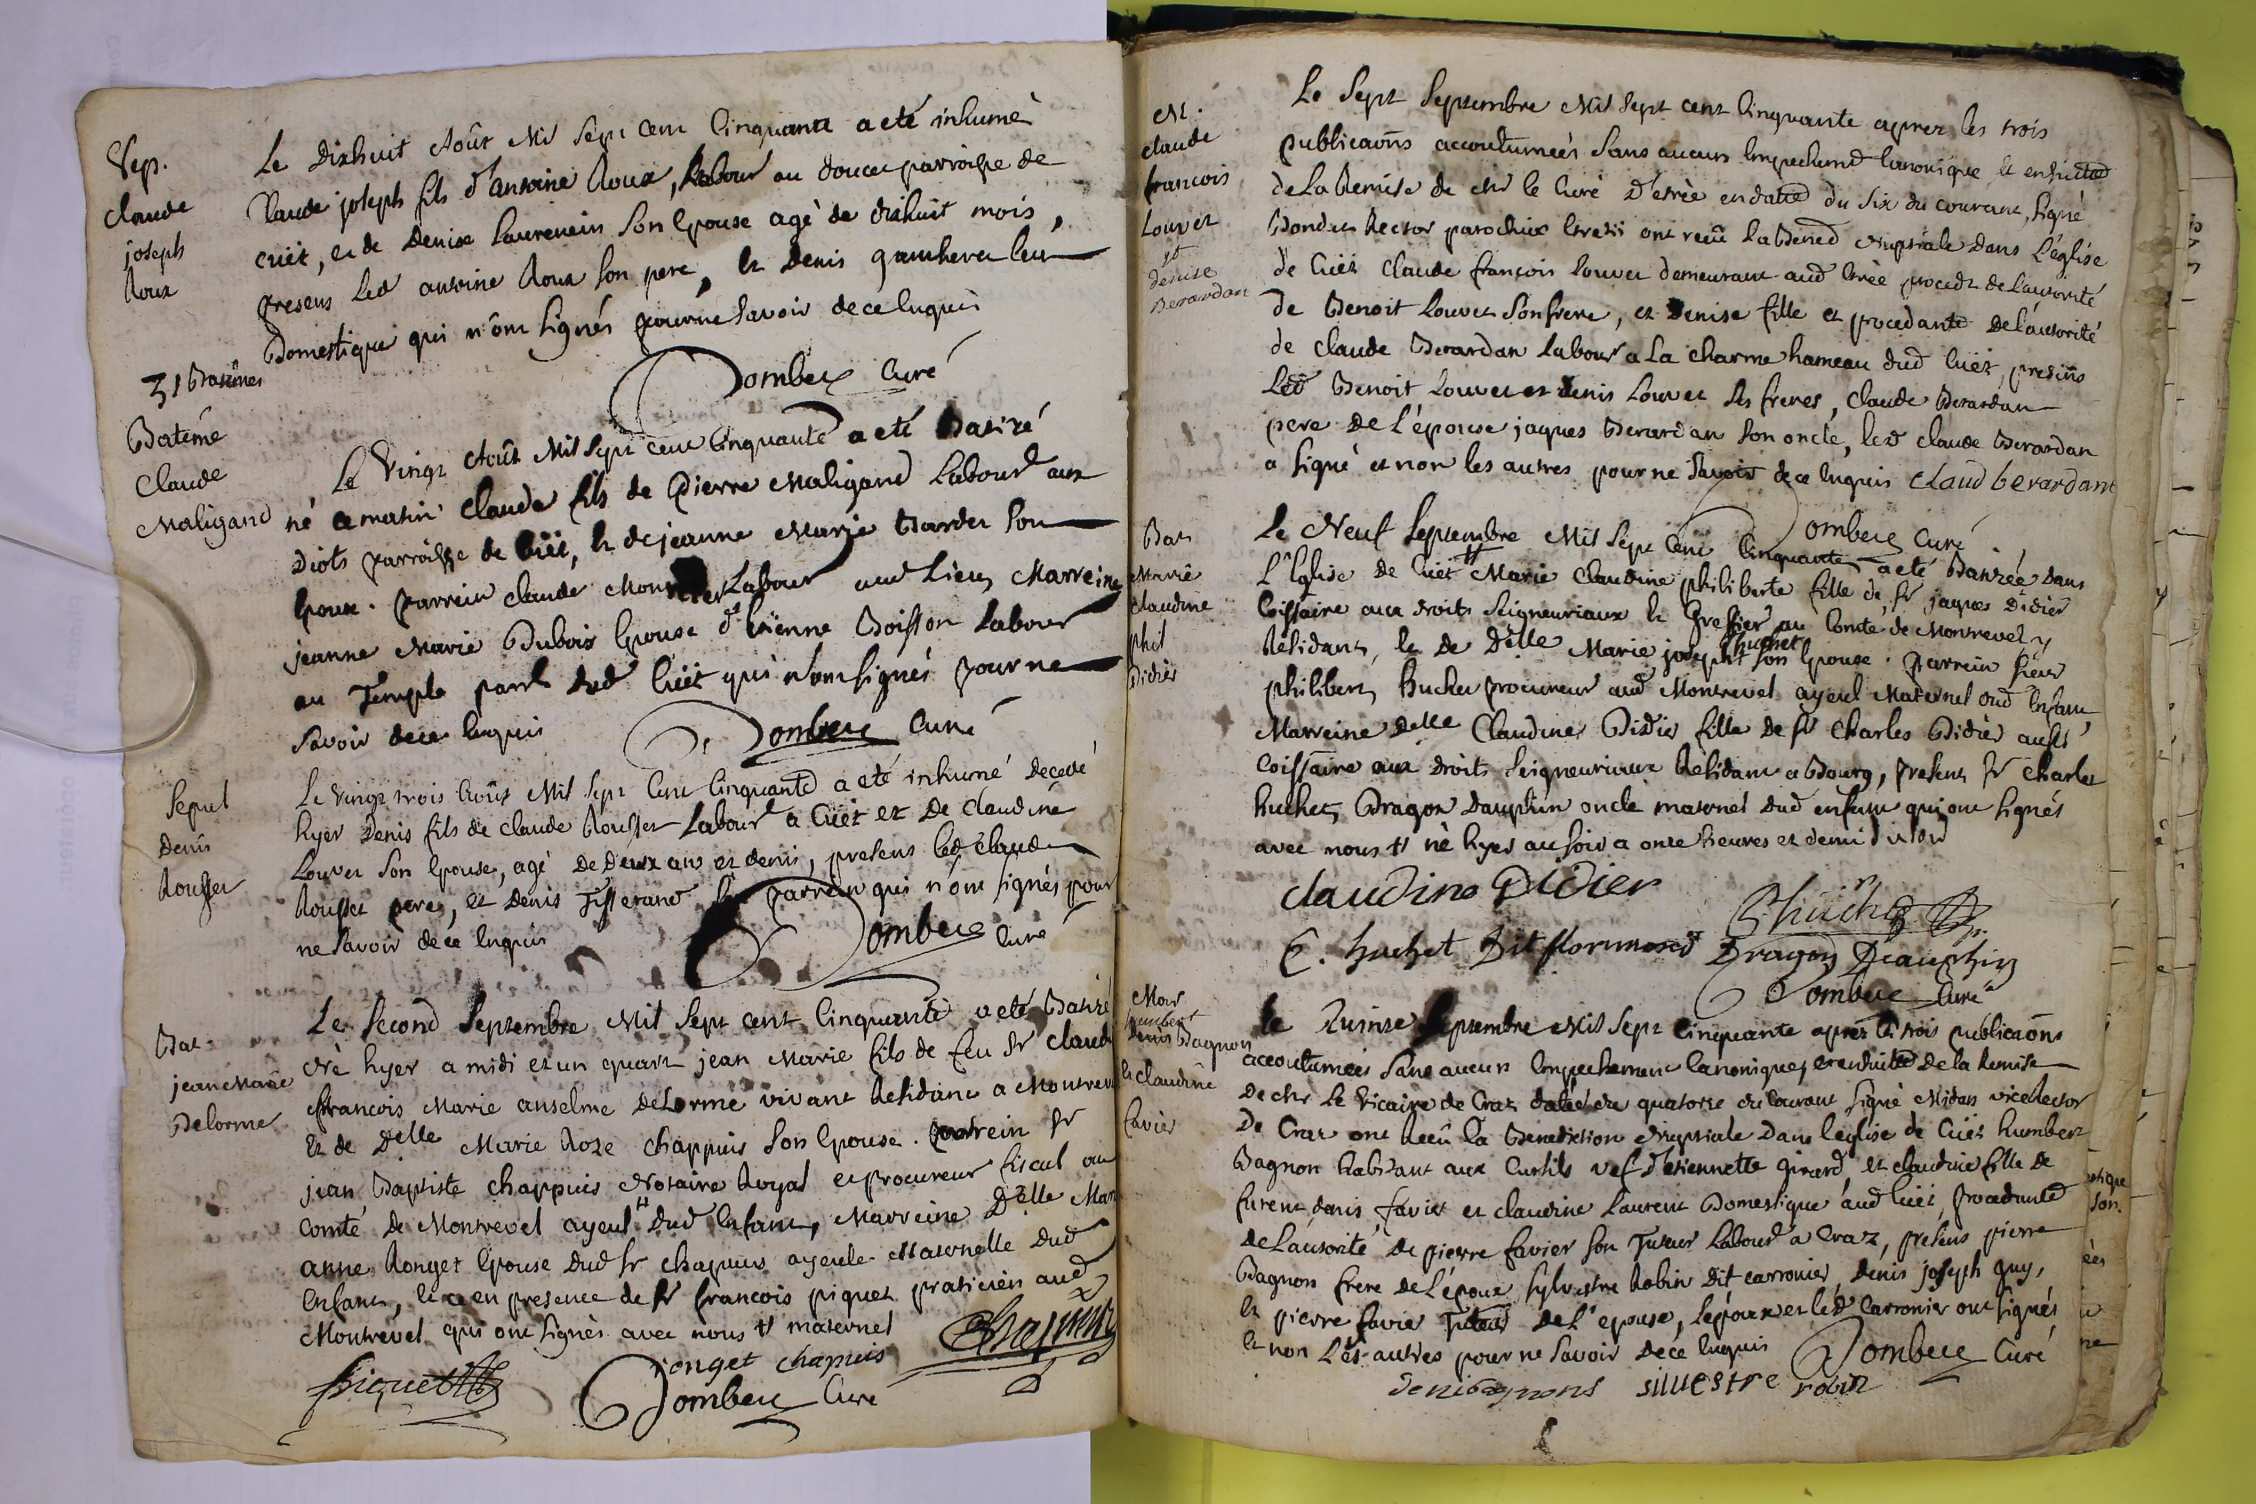 Sep.
claude
joseph
Roux
Le Dixhuit Aoûst Mil Sept cent Cinquante a eté inhumé
Claude joseph fils d'antoine Roux, Labour au doucet parroisse de
cuët, et de Denise Laurencin Son Epouse agé de dixhuit mois,
presens Led antoine Roux Son pere, Et Denis leur
Domestique qui n'ont Signés pour ne Savoir de ce Enquis
Dombey Curé
31 Batêmes
Batême
Claude
Maligand
Le Vingt Aoûst Mil Sept cent Cinquante a eté Batizé
né ce matin Claude fils de Pierre Maligand Labour aux
Diots parroisse de Cüët, Et de jeanne Marie Bardet Son
Epouse. parrein claude Labour aud Lieu, Marreine
jeanne Marie Dubois Epouse d'Etienne Boisson Labour
au Temple parr dud Cüët qui n'ont Signés pour ne
Savoir de ce Enquis
Dombey Curé
Sepul
Denis
Rousset
Le Vingt trois Aoûst Mil Sept Cent Cinquante a eté inhumé Decedé
hyer Denis fils de claude Rousset Labour a Cüët et De Claudine
Louvet Son Epouse, agé De Deux ans et demi, presens led claude
Rousset pere, et Denis Tisserand Son parrein qui n'ont Signés pour
ne Savoir de ce Enquis
Dombey Curé
Bat.
jean Marie
Delorme
Le Second Septembre Mil Sept cent Cinquante a eté Batizé
Né hyer a midi et un quart jean Marie fils de feu Sr Claude
francois Marie anselme deLorme vivant Residant a Montrevel
Et de Delle Marie Roze chappuis Son Epouse. parrein Sr
jean Baptiste chappuis Notaire Royal et procureur fiscal au
comté De Montrevel ayeul # Dud Enfant, Marreine Delle Marie
anne Ronget Epouse Dud Sr chapuis ayeule Maternelle Dud
Enfant, Et ce en presence de Sr francois piquet praticien aud
Montrevel qui ont Signés avec nous # maternel
piquet
ronget chapuis
Chapuis
Dombey Curé
M.
claude
francois
Louvet
et
denise
Berardan
Le Sept Septembre Mil Sept cent Cinquante apres les trois
publicaoñs accoutumées Sans aucun Empechemt Canonique Et ensuitte
de La Remise de Mr le Curé D'etrée en datte du Six du courant, Signé
Rector ont reçû La Bened Nuptiale dans L'église
de Cüët Claude francois Louvet demeurant aud procedt de L'autorité
de Benoit Louvet Son frere, et Denise fille et procedante de L'autorité
de Claude Berardan Labour a La Charme hameau dud Cüët, presens
Led Benoit Louvet et denis Louvet Ses freres, Claude Berardan
pere De L'épouse jaques Berardan Son oncle, led claude Berardan
a Signé et non les autres pour ne Savoir de ce Enquis claud berardant
Dombey Curé
Bat
Marie
claudine
phil
Didier
Le Neuf Septembre Mil Sept Cent Cinquante a eté Batizée dans
L'Eglise de Cüët # Marie Claudine philiberte fille de Sr jaques Didier
Coissaire aux droits Seigneuriaux Et Greffier au Comté de Montrevel y
Residant, Et De Delle Marie josepht huchet Son Epouse. parrein Sieur
philibert huchet procureur aud Montrevel ayeul Maternel dud Enfant,
Marreine Delle Claudine Didier fille de Sr Charles Didier aussi
Coissaire aux droits Seigneuriaux Residant a Bourg, presens Sr Charles
huchet Dragon Dauphin oncle maternel dud enfant qui ont Signés
avec nous # né hyer au Soir a onze heures et demi
claudine Didier
Phuchet
C. huchet Dit florimond Dragon Deauphin
Dombey Curé
Mar
humbert
Denis Bagnon
Et Claudine
favier
Le Quinze Septembre Mil Sept Cinquante apres les trois publicaõns
accoutumées Sans aucun Empechement Canonique, et ensuitte de la Remise
de Mr Le Vicaire de Craz datée du quatorze du Courant Signé Midan vice Rector
De Craz ont Reçû La Benediction Nuptiale Dans l'eglise de Cüët humbert
Bagnon habitant aux Curtils vef d'etiennette Girard, et claudine fille de
furent denis favier et claudine Laurent Domestique aud Cüët, procedante
de L'autorité de pierre favier Son Tuteur Labour a Craz, presens pierre
Bagnon frere de L'époux, Sylvestre Robin Dit carronier, denis joseph guy,
Et pierre favier Tuteur De L'epouse, L'époux et led Carronier ont Signés
Et non Les autres pour ne Savoir De ce Enquis
Dombey Curé
denibagnons siluestre robin